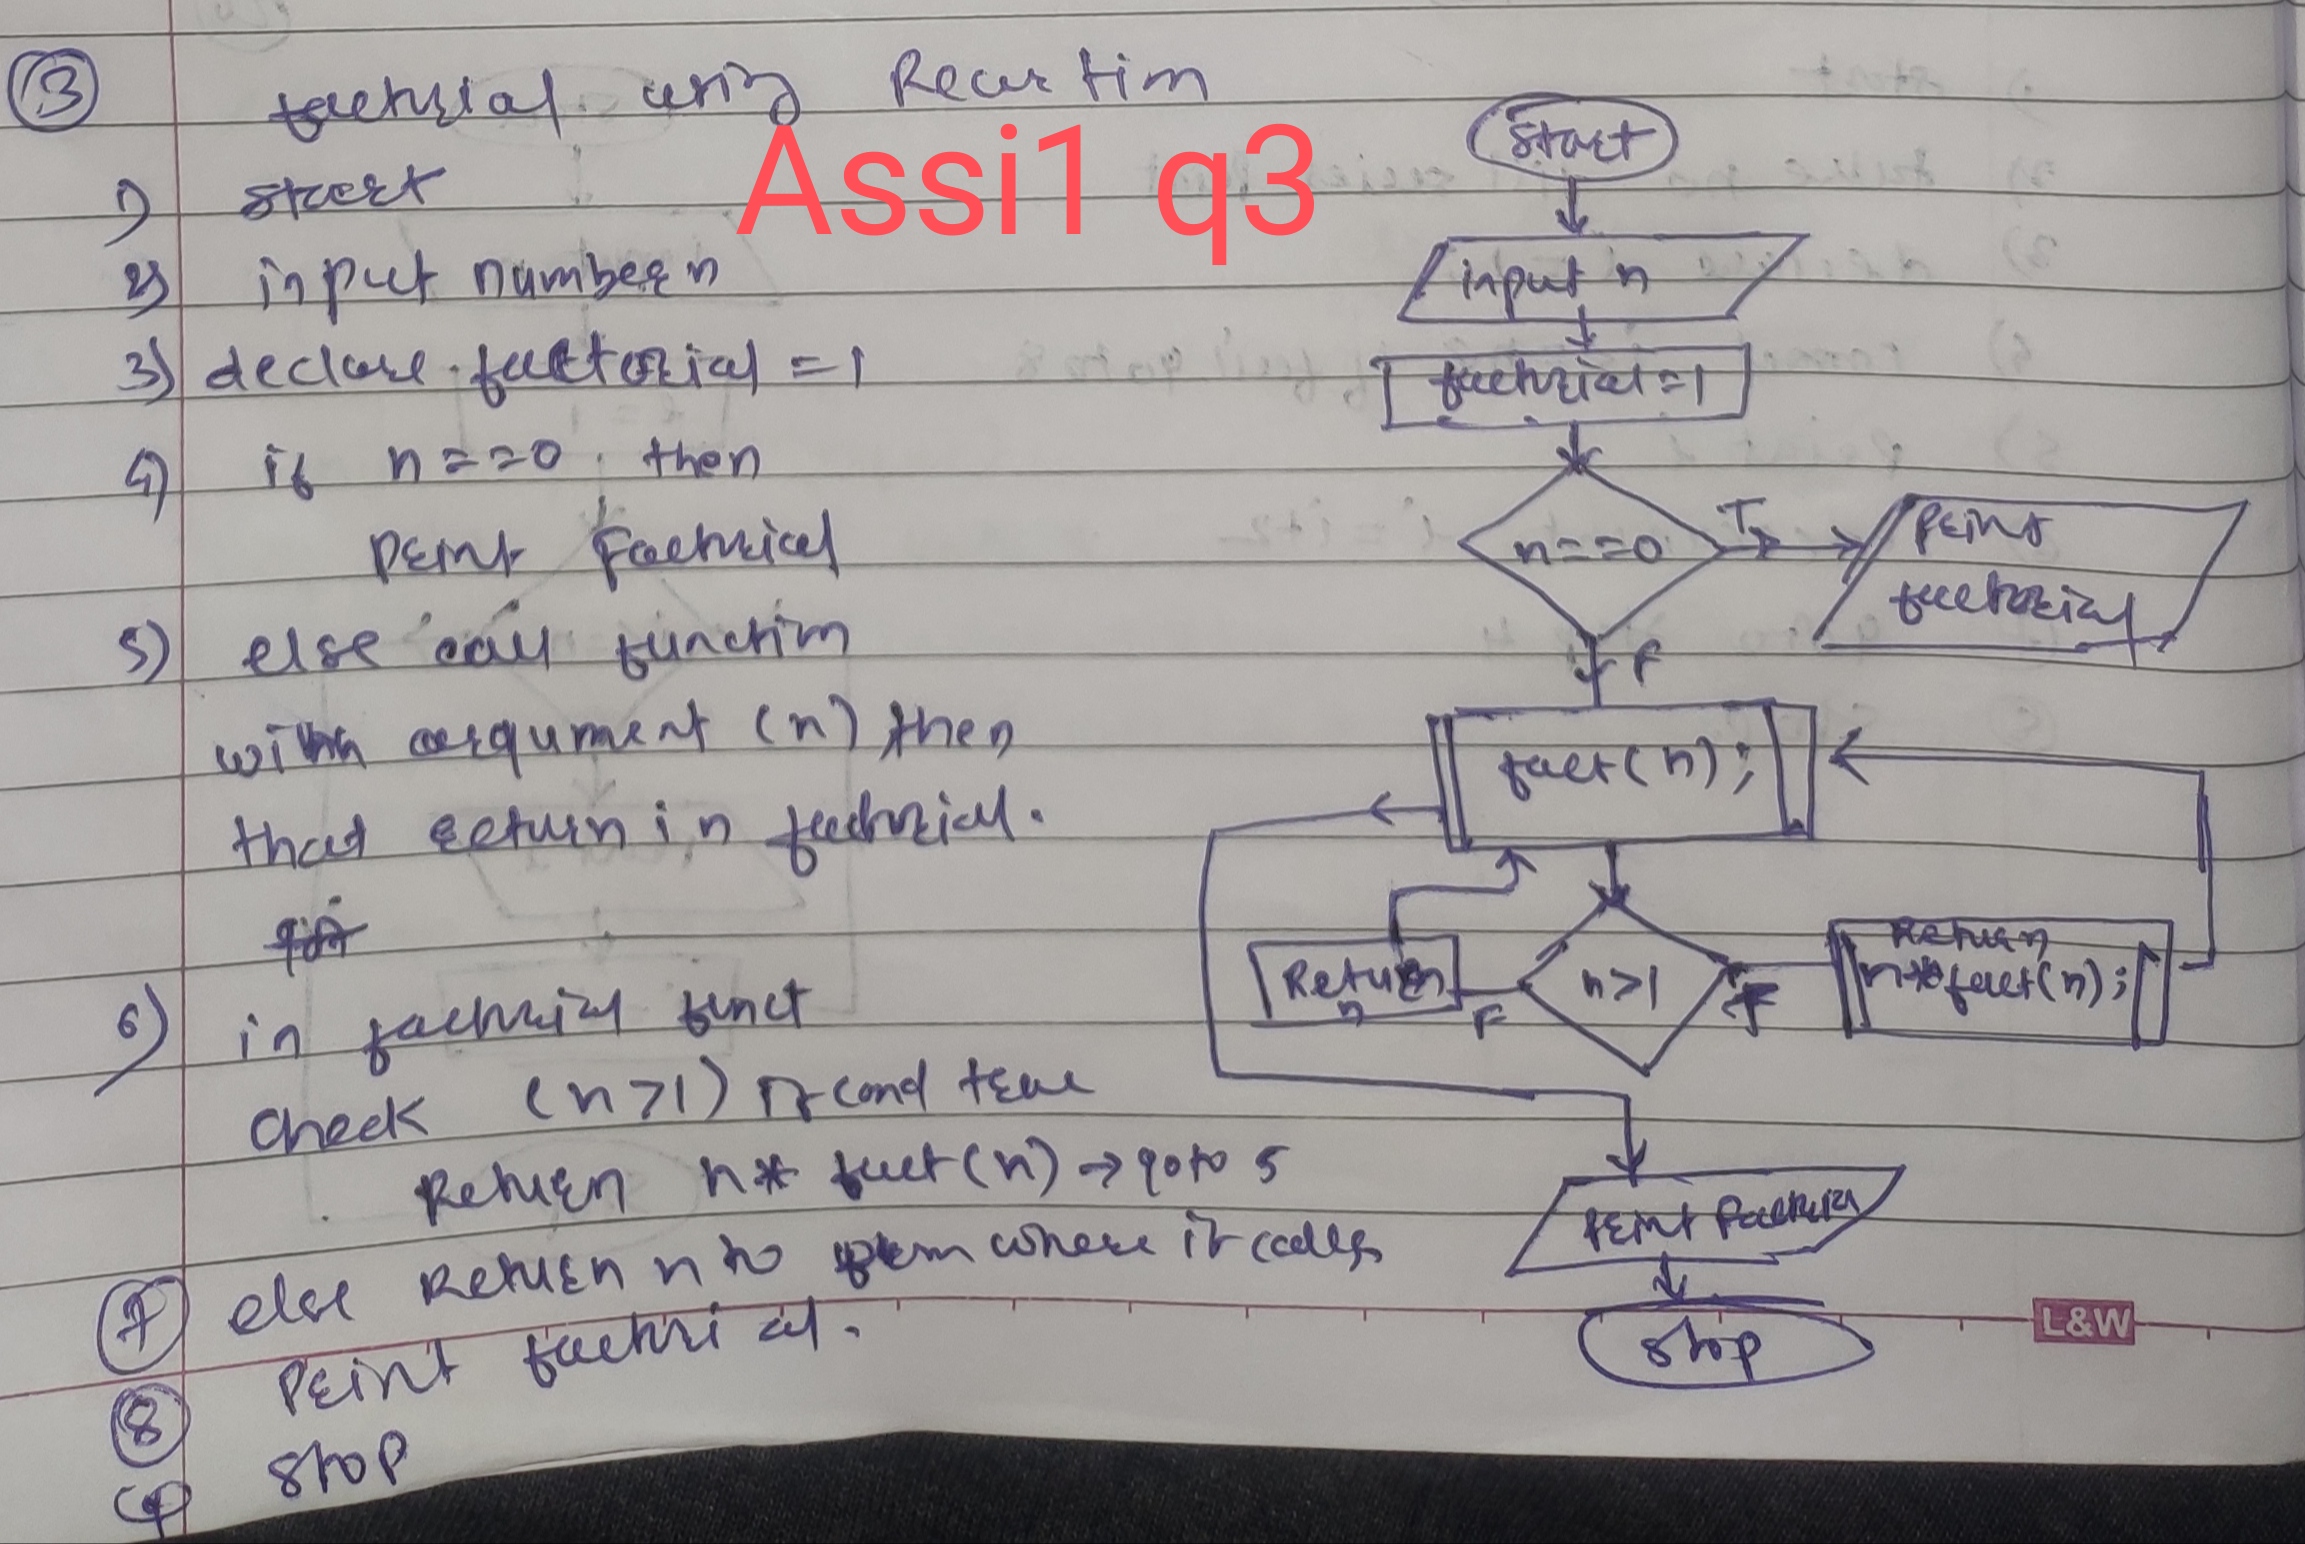 3
factorial using Recurtion
Assi1 q3
1) start
2) input number n
3) declare factorial = 1
4) if n==0 then
print factorial
5) else call function
with argument (n) then
that return in factorial.
6) in factorial funct
check (n>1) if cond true
Return n* fact(n) → goto 5
7 else Return n to where it calls
8 print factorial.
9 stop
start
input n
factorial=1
n==0
T
print
factorial
F
fact(n);
Return
n
F
n>1
Return
n* fact(n);
print factorial
stop
L&W